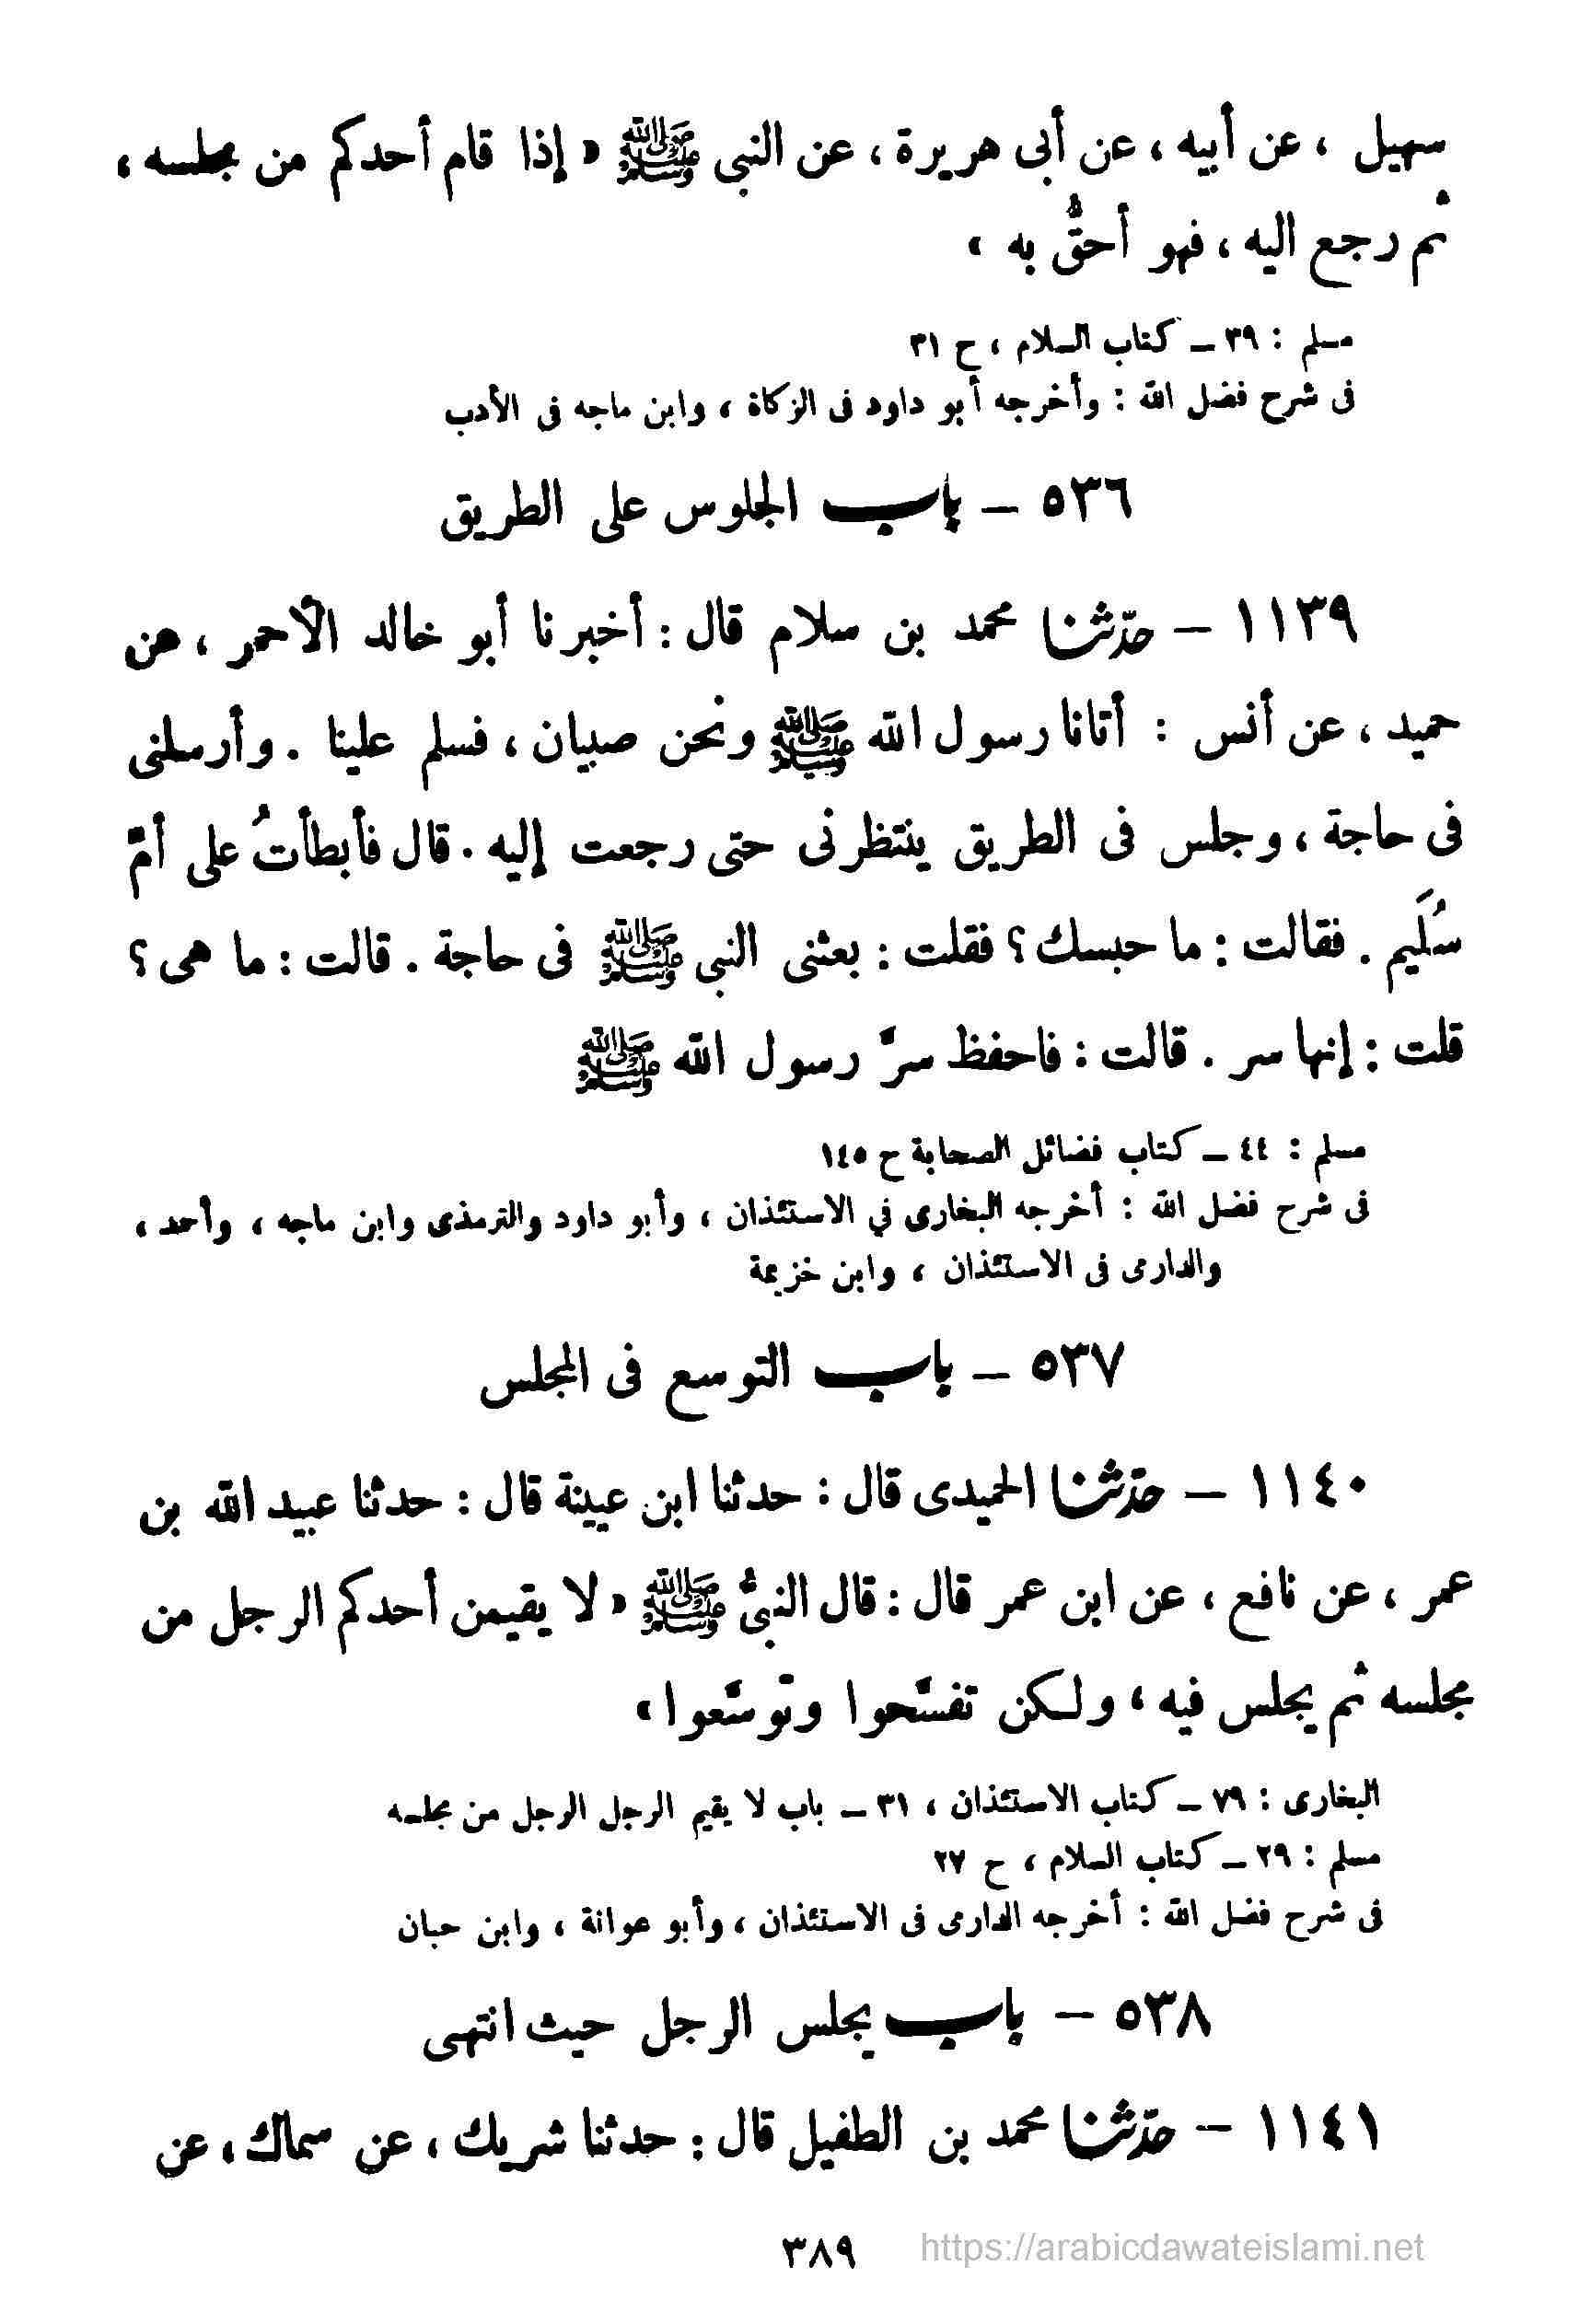 سهيل ، عن أبيه ، عن أبى هريرة ، عن النبى ﷺ « إذا قام أحدكم من مجلسه ،
ثم رجع اليه ، فهو أحقُّ به »
مسلم : ٣٩ ـ كتاب السلام ، ح ٣١
فى شرح فضل الله : وأخرجه أبو داود فى الزكاة ، وابن ماجه فى الأدب
٥٣٦ – باب الجلوس على الطريق
١١٣٩ – حدّثنا محمد بن سلام قال : أخبرنا أبو خالد الأحمر ، عن
حميد ، عن أنس : أتانا رسول الله ﷺ ونحن صبيان ، فسلم علينا . وأرسلنى
فى حاجة ، وجلس فى الطريق ينتظرنى حتى رجعت إليه . قال فأبطأتُ على أمّ
سُلَيم . فقالت : ما حبسك ؟ فقلت : بعثنى النبى ﷺ فى حاجة . قالت : ما هى ؟
قلت : إنها سر . قالت : فاحفظ سرَّ رسول الله ﷺ
مسلم : ٤٤ ـ كتاب فضائل الصحابة ح ١٤٥
فى شرح فضل الله : أخرجه البخارى في الاستئذان ، وأبو داود والترمذى وابن ماجه ، وأحمد ،
والدارمى فى الاستئذان ، وابن خزيمة
٥٣٧ – باب التوسع فى المجلس
١١٤٠ – حدّثنا الحميدى قال : حدثنا ابن عيينة قال : حدثنا عبيد الله بن
عمر ، عن نافع ، عن ابن عمر قال : قال النبىُّ ﷺ « لا يقيمن أحدكم الرجل من
مجلسه ثم يجلس فيه ، ولكن تفسَّحوا وتوسَّعوا »
البخارى : ٧٩ ـ كتاب الاستئذان ، ٣١ ـ باب لا يقيم الرجل الرجل من مجلسه
مسلم : ٢٩ ـ كتاب السلام ، ح ٢٧
فى شرح فضل الله : أخرجه الدارمى فى الاستئذان ، وأبو عوانة ، وابن حبان
٥٣٨ – باب يجلس الرجل حيث انتهى
١١٤١ – حدّثنا محمد بن الطفيل قال : حدثنا شريك ، عن سماك ، عن
٣٨٩
https://arabicdawateislami.net